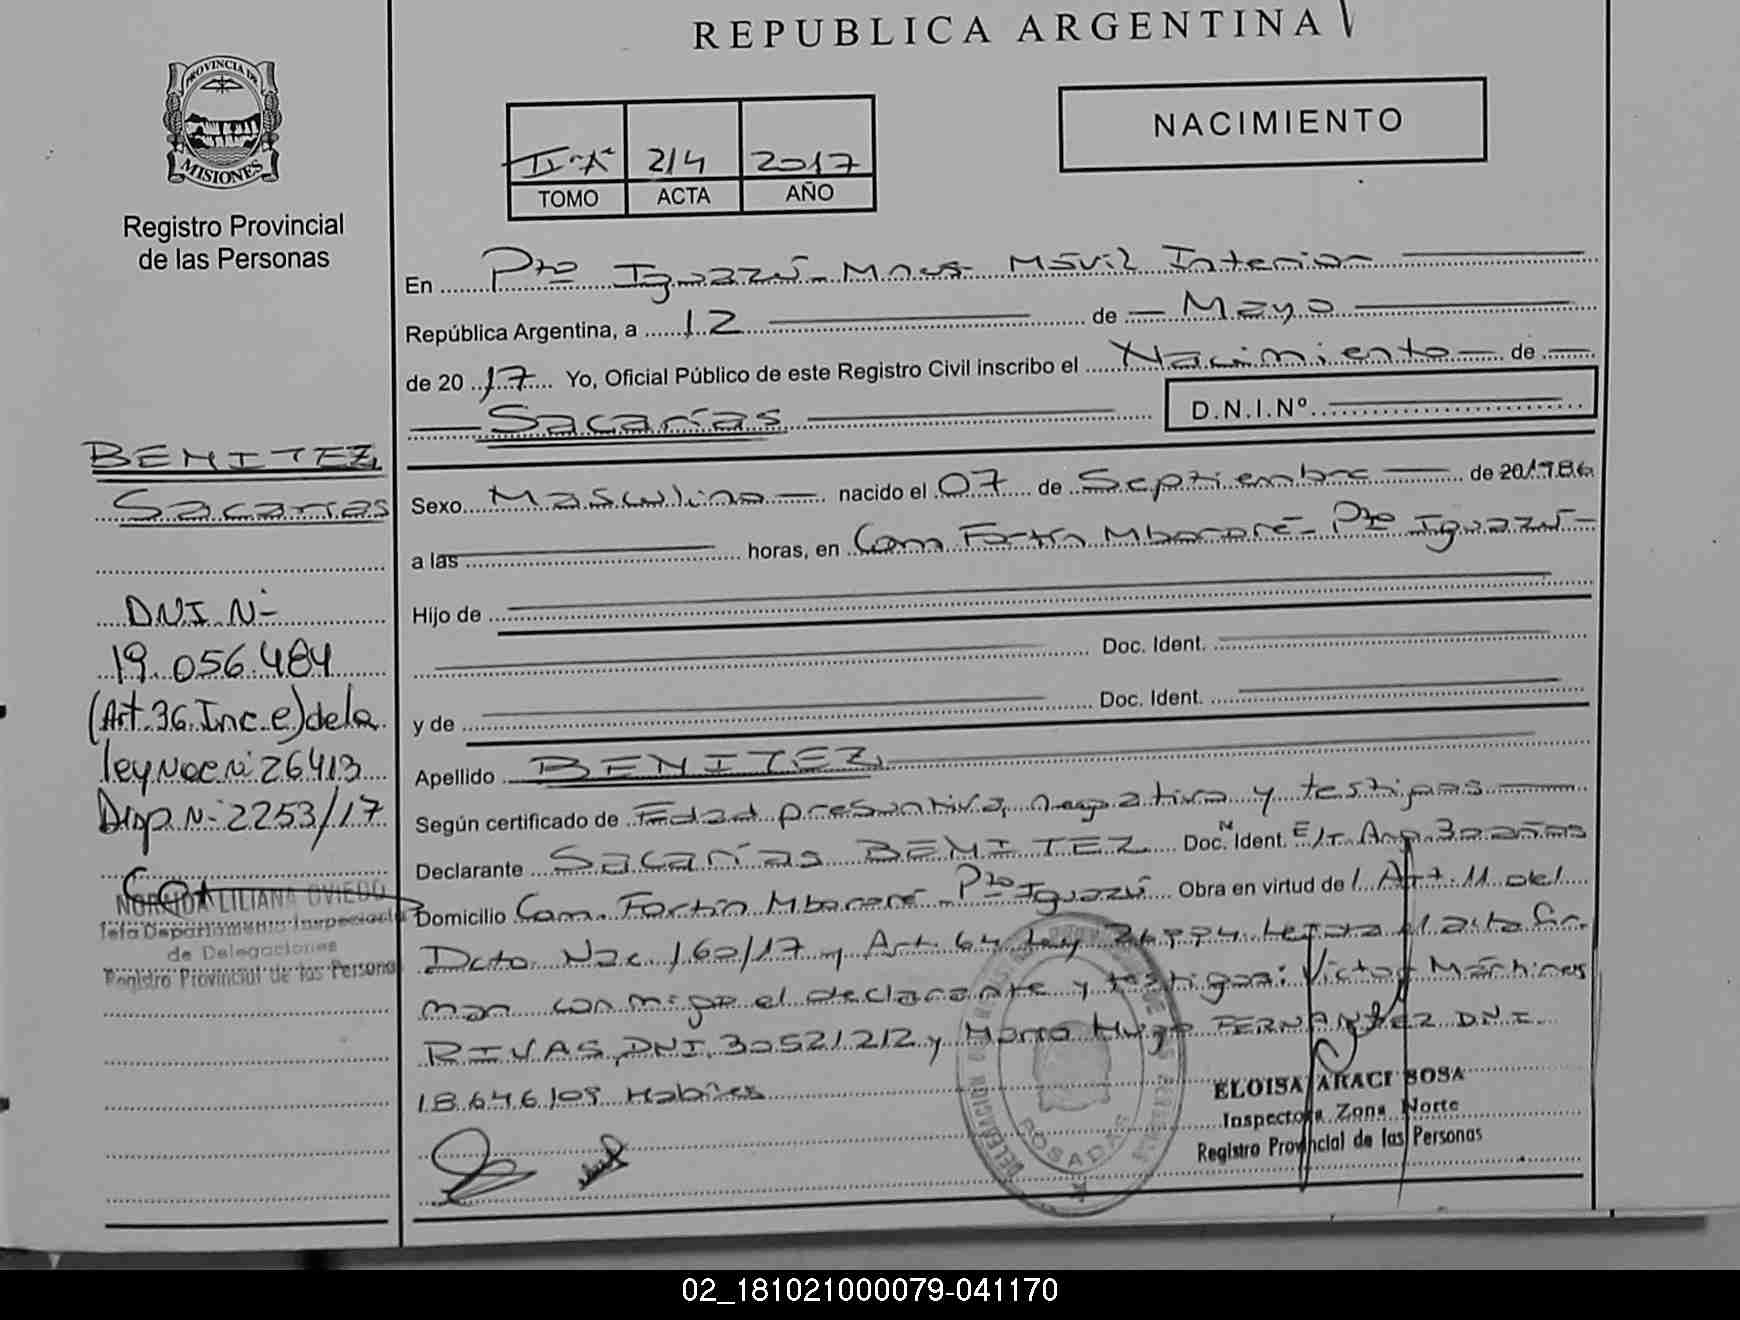 REPUBLICA ARGENTINA
PROVINCIA DE
MISIONES
Registro Provincial
de las Personas
NACIMIENTO
II "A" 214 2017
TOMO ACTA AÑO
En Pto Iguazú - Mnes - Móvil Interior
República Argentina, a 12 de Mayo
de 2017 Yo, Oficial Público de este Registro Civil inscribo el Nacimiento de
Sacarías D.N.I.Nº
BENITEZ,
Sacarías
DNI Nº
19.056.484
(Art. 36 Inc. e) de la
ley Nac Nº 26413
Disp. Nº 2253/17
NORMA LILIANA OVIEDO
Jefa Departamento Inspección
de Delegaciones
Registro Provincial de las Personas
Sexo Masculino nacido el 07 de Septiembre de 201986
a las horas, en Com. Fortín Mbororé - Pto Iguazú -
Hijo de
Doc. Ident.
y de Doc. Ident.
Apellido BENITEZ,
Según certificado de Edad presuntiva, negativa y testigos
Declarante Sacarías BENITEZ Doc. Ident.
Domicilio Com. Fortín Mbororé - Pto Iguazú Obra en virtud de l Art. 11 del
Dcto. Nac. 160/17 y Art. 64 Ley Leída el acta fir
man conmigo el declarante y testigos: Victor Martinez
RIVAS, DNI. 30521212 y Mario Hugo FERNANDEZ DNI.
18.646.109 Habiles
DELEGACION
POSADAS
ELOISA ARACI SOSA
Inspectora Zona Norte
Registro Provincial de las Personas
02_181021000079-041170